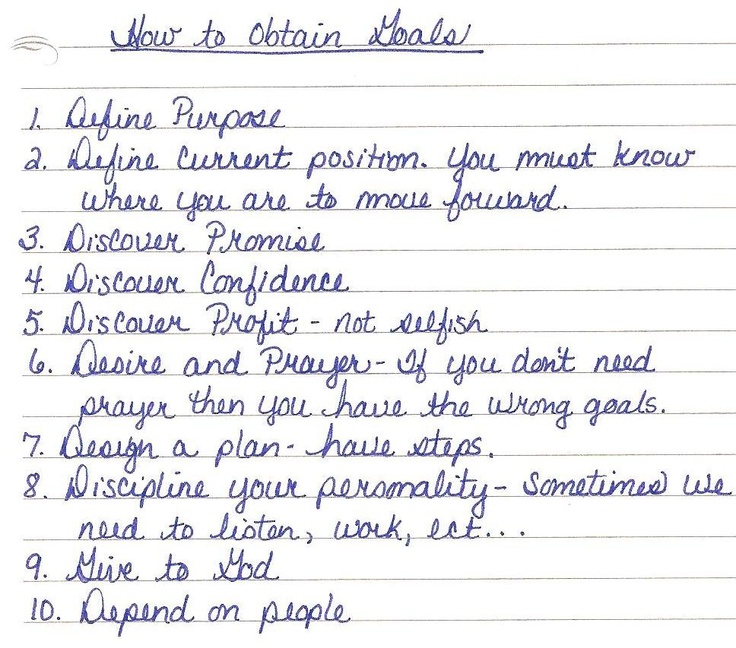 How to Obtain Goals
1. Define Purpose
2. Define Current position. You must know
where you are to move forward.
3. Discover Promise
4. Discover Confidence
5. Discover Profit - not selfish
6. Desire and Prayer - If you don't need
prayer then you have the wrong goals.
7. Design a plan - have steps.
8. Discipline your personality - Sometimes we
need to listen, work, ect...
9. Give to God
10. Depend on people